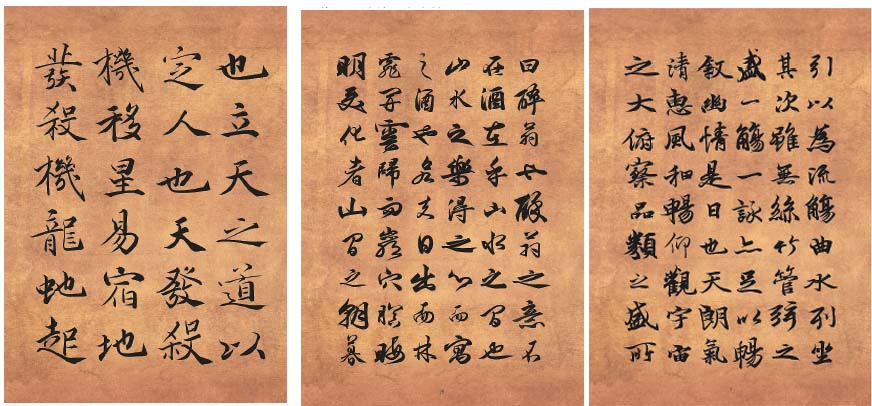 也立天之道以
定人也天發殺
機移星易宿地
發殺機龍虵起
曰醉翁也醉翁之意不
在酒在乎山水之間也
山水之樂得之心而寓
之酒也若夫日出而林
霏開雲歸而巖穴暝晦
明變化者山間之朝暮
引以為流觴曲水列坐
其次雖無絲竹管弦之
盛一觴一詠亦足以暢
敘幽情是日也天朗氣
清惠風和暢仰觀宇宙
之大俯察品類之盛所